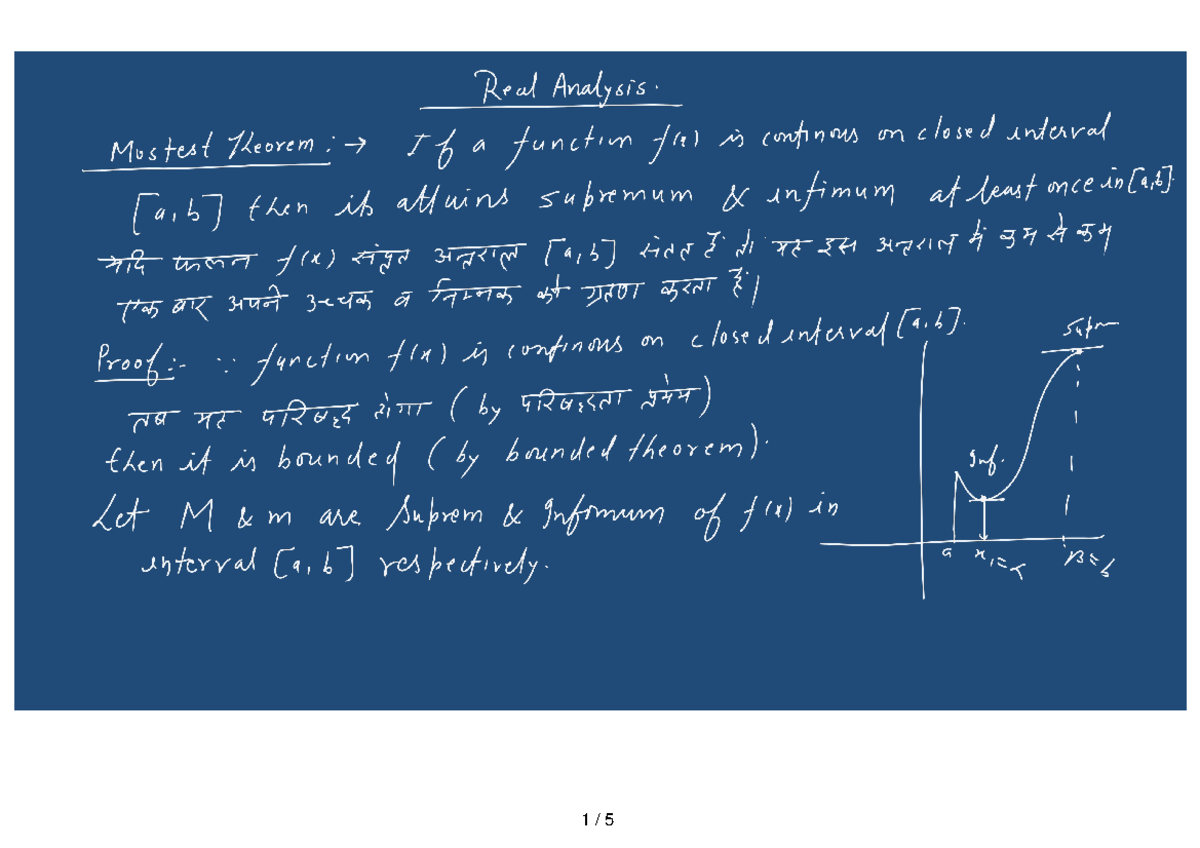 Real Analysis.
Mostest Theorem :→ If a function f(x) is continous on closed interval
[a, b] then it attains supremum & infimum at least once in [a,b].
यदि फलन f(x) संवृत अन्तराल [a, b] संतत हैं तो यह इस अन्तराल में कम से कम
एक बार अपने उच्चक व निम्नक को ग्रहण करता हैं।
Proof :- ∵ function f(x) is continous on closed interval [a, b].
तब यह परिबद्ध होगा ( by परिबद्धता प्रमेय )
then it is bounded ( by bounded theorem ).
Let M & m are Suprem & Infomum of f(x) in
interval [a, b] respectively.
Suprm
Inf.
a x₁=α β=b
1 / 5